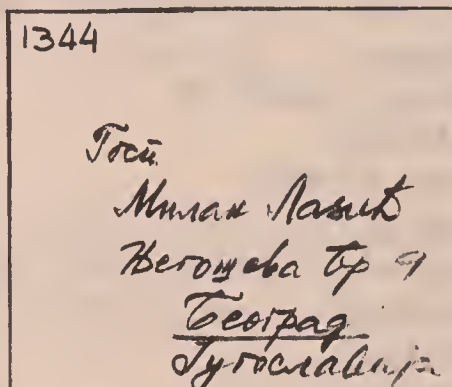 1344
Госп
Милан Лазић
Његошева бр 9
Београд
Југославија